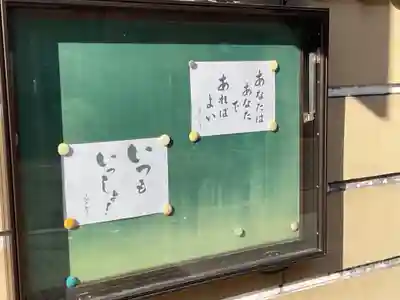 あなたは
あなた
で
あれば
よい
いつも
いっしょ！